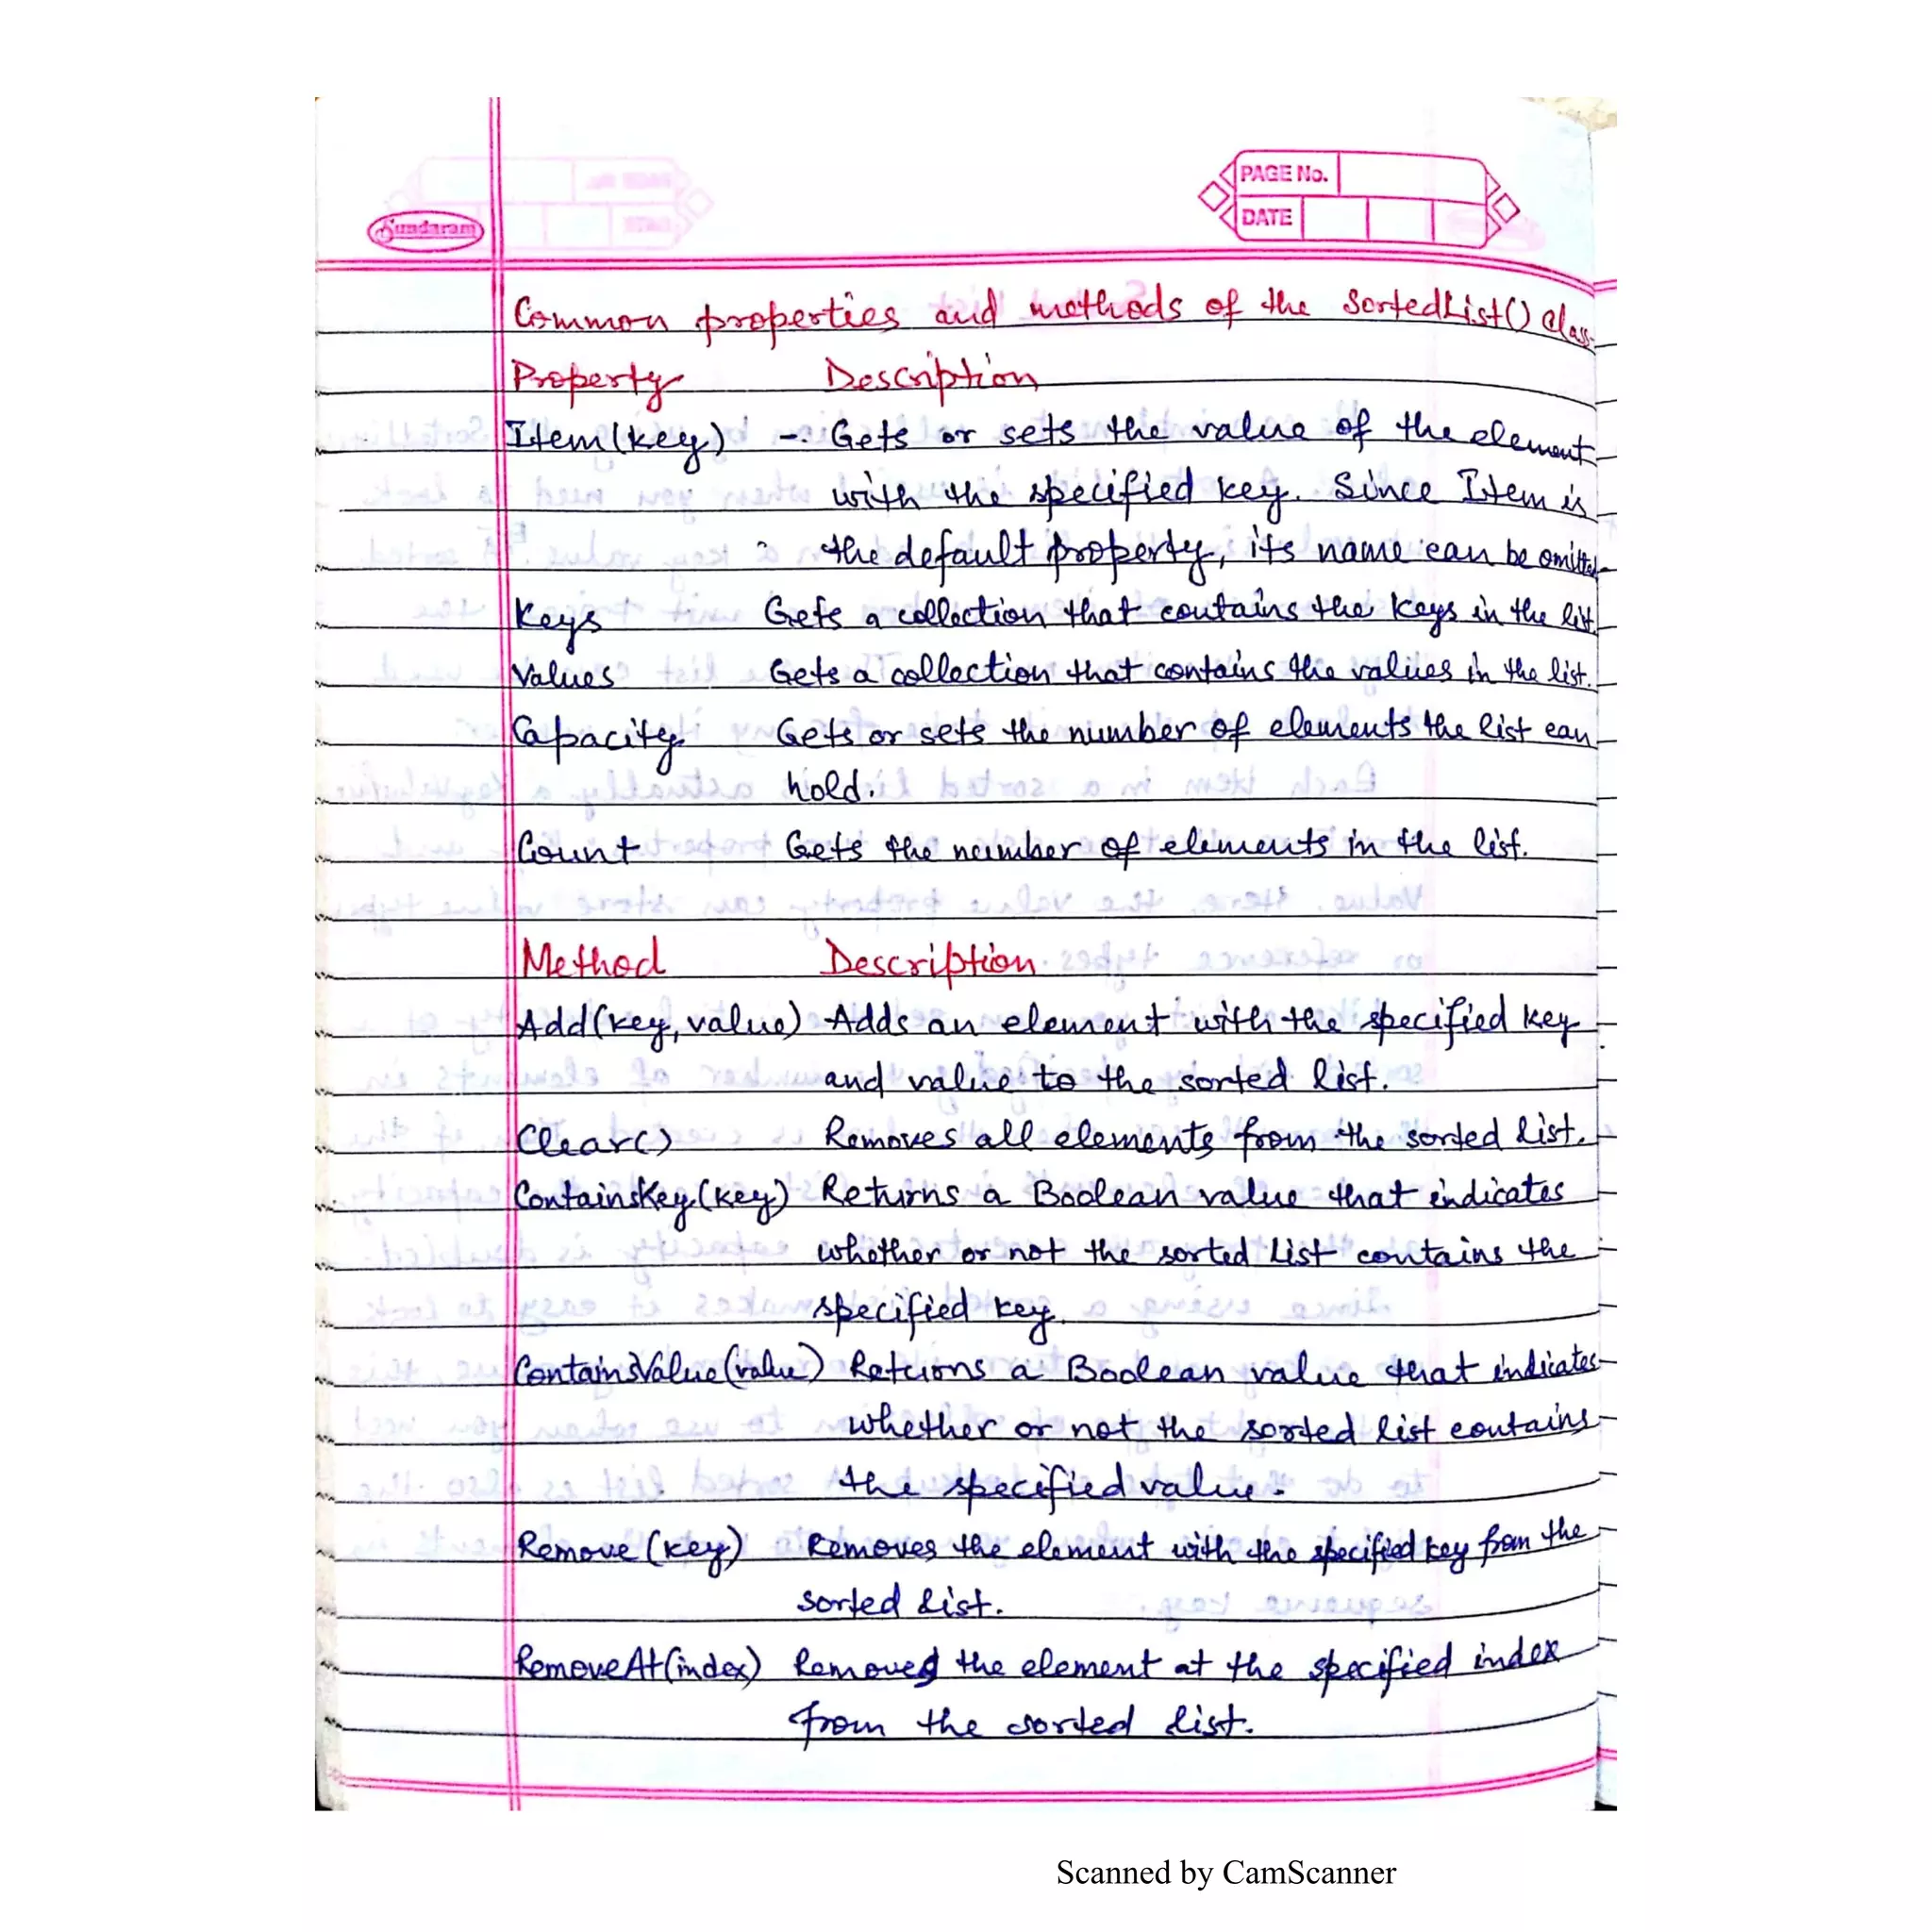 Sundaram
PAGE No.
DATE
Common properties and methods of the SortedList() Class.
Property Description
Item(key) - Gets or sets the value of the element
with the specified key. Since Item is
the default property, its name can be omitted
Keys Gets a collection that contains the keys in the list.
Values Gets a collection that contains the values in the list.
Capacity Gets or sets the number of elements the list can
hold.
Count Gets the number of elements in the list.
Method Description
Add(key, value) Adds an element with the specified key
and value to the sorted list.
Clear() Removes all elements from the sorted list.
ContainsKey(key) Returns a Boolean value that indicates
whether or not the sorted list contains the
specified key.
ContainsValue(value) Returns a Boolean value that indicates
whether or not the sorted list contains
the specified value.
Remove (key) Removes the element with the specified key from the
sorted list.
RemoveAt(index) Removes the element at the specified index
from the sorted list.
Scanned by CamScanner